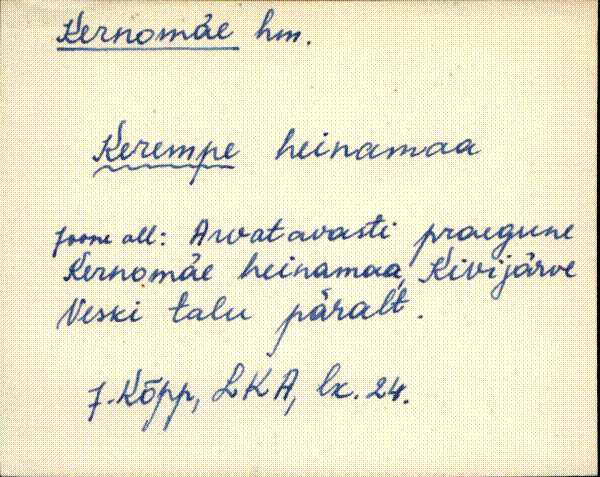 Kernomäe hm.
Kerempe heinamaa
Joone all: Arvatavasti praegune
Kernomäe heinamaa, Kivijärve
Veski talu päralt.
J. Kõpp, LKA, lk. 24.